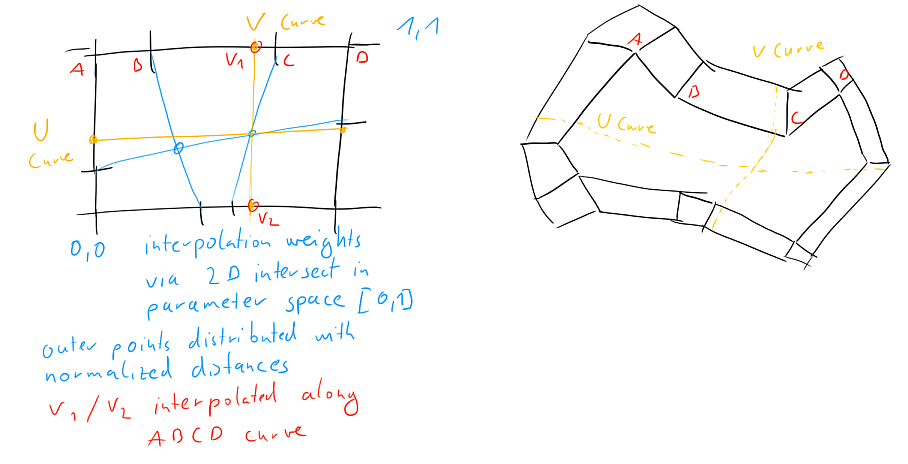 V Curve
1,1
A
B
V1
C
D
U
Curve
0,0
interpolation weights
via 2D intersect in
parameter space [0,1]
outer points distributed with
normalized distances
V1/V2 interpolated along
ABCD curve
V2
A
B
V Curve
D
C
U Curve